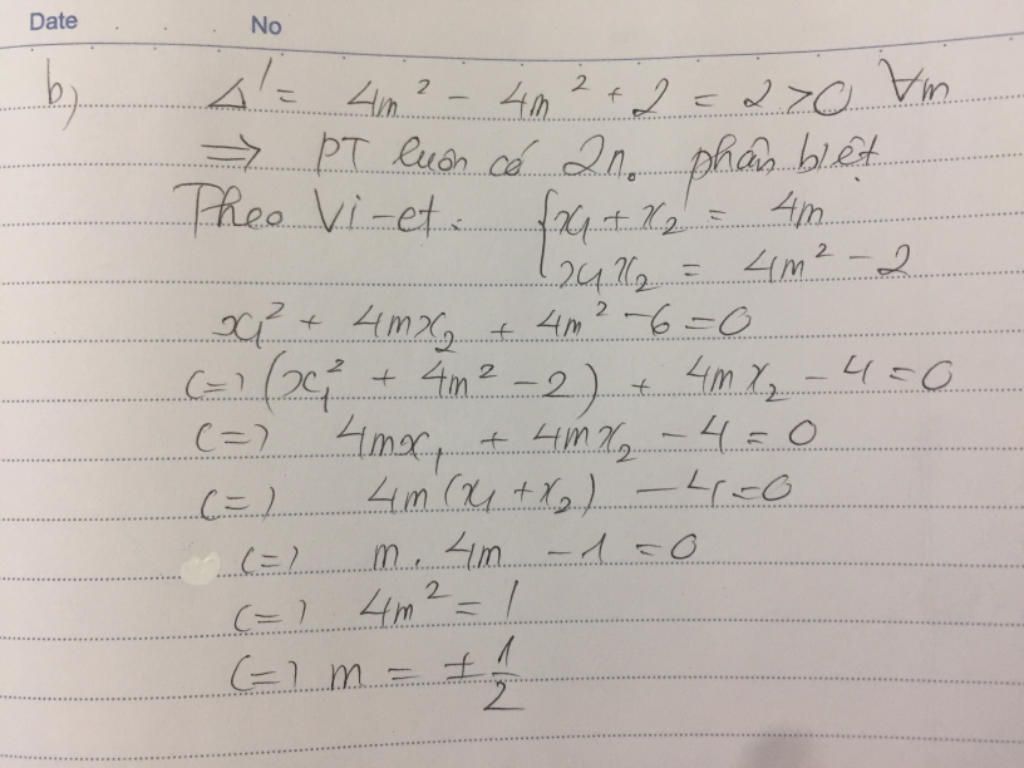 Date No
b) Δ' = 4m² - 4m² + 2 = 2 > 0 ∀m
=> PT luôn có 2n. phân biệt
Theo Vi-et: { x₁ + x₂ = 4m
x₁x₂ = 4m² - 2
x₁² + 4mx₂ + 4m² - 6 = 0
(=) (x₁² + 4m² - 2) + 4mx₂ - 4 = 0
(=) 4mx₁ + 4mx₂ - 4 = 0
(=) 4m(x₁ + x₂) - 4 = 0
(=) m. 4m - 1 = 0
(=) 4m² = 1
(=) m = ± 1/2